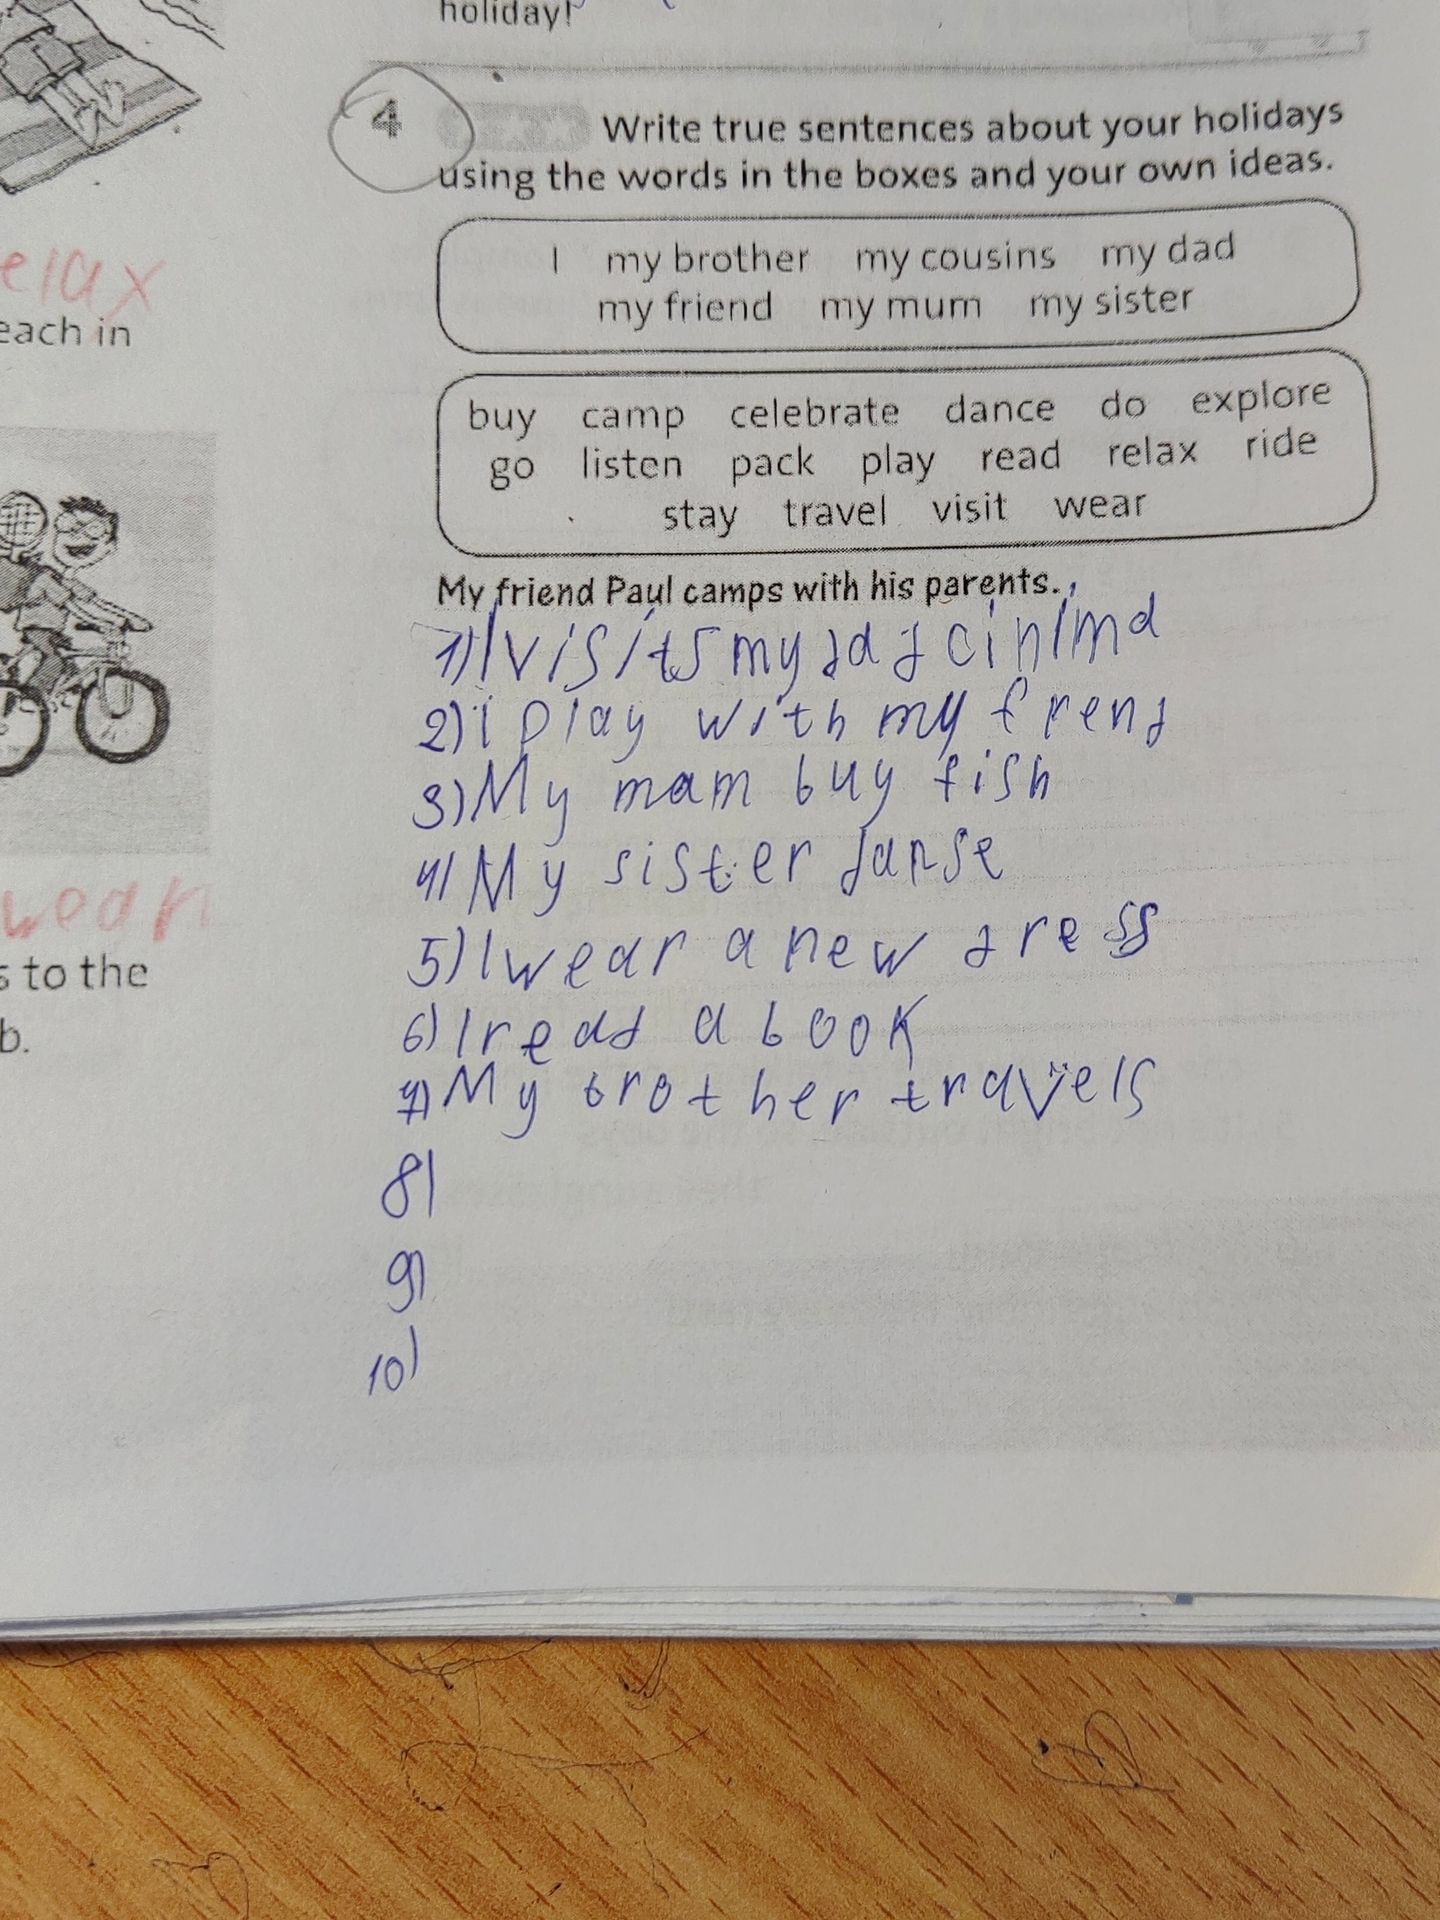 holiday!
4
Write true sentences about your holidays
using the words in the boxes and your own ideas.
I my brother my cousins my dad
my friend my mum my sister
buy camp celebrate dance do explore
go listen pack play read relax ride
stay travel visit wear
My friend Paul camps with his parents.
1) I visits my dad cinima
2) i play with my frend
3) My mam buy fish
4) My sister danse
5) I wear a new dress
6) I read a book
7) My brother travels
8)
9)
10)
elax
each in
wear
s to the
b.